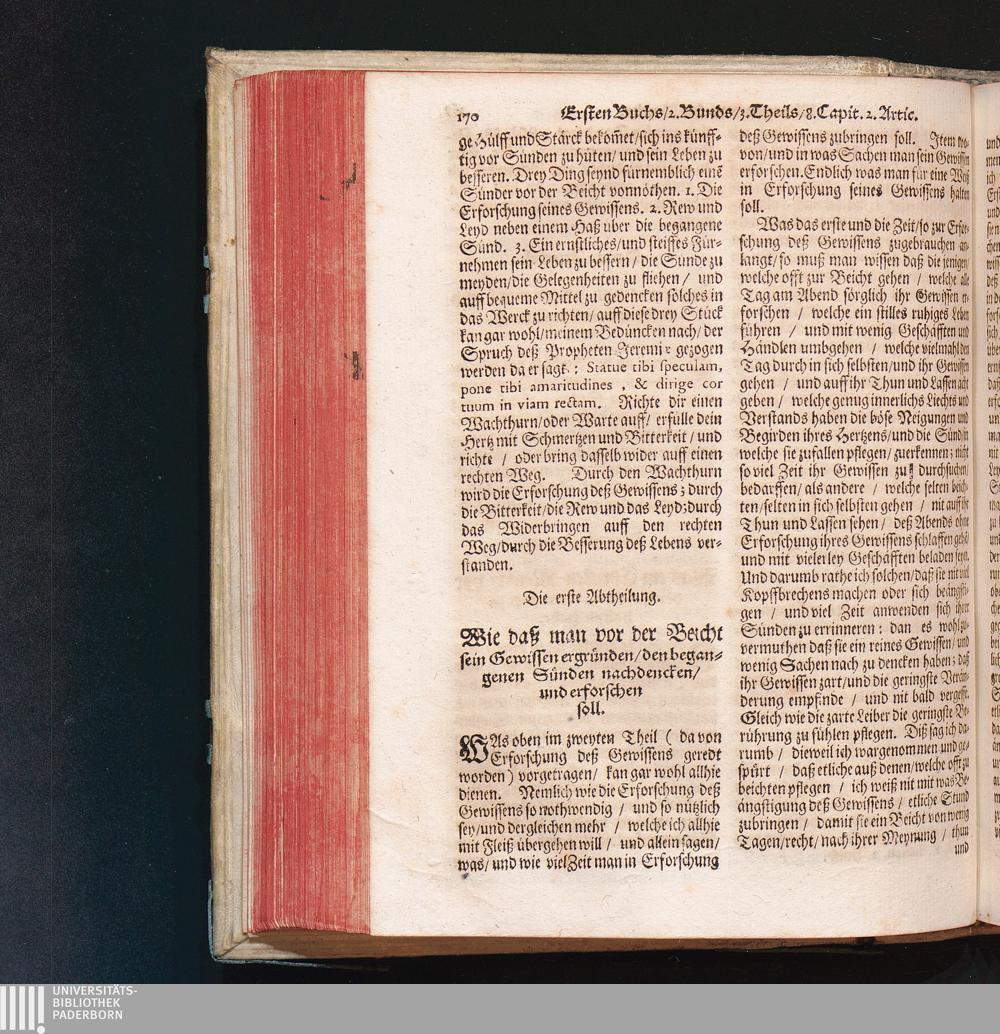 170
Ersten Buchs/2. Bunds/3. Theils/8. Capit. 2. Artic.
ge Hülff und Stärck bekom̃et/sich ins künff-
tig vor Sünden zu hüten/ und sein Leben zu
besseren. Drey Ding seynd fürnemblich einẽ
Sünder vor der Beicht vonnöthen. 1. Die
Erforschung seines Gewissens. 2. Rew und
Leyd neben einem Haß über die begangene
Sünd. 3. Ein ernstliches/und steiffes Für-
nehmen sein Leben zu bessern / die Sünde zu
meyden/die Gelegenheiten zu fliehen / und
auff bequeme Mittel zu gedencken solches in
das Werck zu richten/ auff diese drey Stück
kan gar wohl/meinem Bedüncken nach/ der
Spruch deß Propheten Jeremiæ gezogen
werden da er sagt: Statue tibi speculam,
pone tibi amaritudines , & dirige cor
tuum in viam rectam. Richte dir einen
Wachthurn/oder Warte auff/ erfülle dein
Hertz mit Schmertzen und Bitterkeit / und
richte / oder bring dasselb wider auff einen
rechten Weg. Durch den Wachthurn
wird die Erforschung deß Gewissens; durch
die Bitterkeit/die Rew und das Leyd;durch
das Widerbringen auff den rechten
Weg/durch die Besserung deß Lebens ver-
standen.
Die erste Abtheilung.
Wie daß man vor der Beicht
sein Gewissen ergründen/den began-
genen Sünden nachdencken/
und erforschen
soll.
WAs oben im zweyten Theil ( da von
Erforschung deß Gewissens geredt
worden ) vorgetragen/ kan gar wohl allhie
dienen. Nemlich wie die Erforschung deß
Gewissens so nothwendig / und so nützlich
sey/und dergleichen mehr / welche ich allhie
mit Fleiß übergehen will / und allein sagen/
was/ und wie viel Zeit man in Erforschung
deß Gewissens zubringen soll. Item wo-
von/und in was Sachen man sein Gewissen
erforschen. Endlich was man für eine Weiß
in Erforschung seines Gewissens halten
soll.
Was das erste und die Zeit/so zur Erfor-
schung deß Gewissens zugebrauchen an-
langt/so muß man wissen daß die jenigen/
welche offt zur Beicht gehen / welche alle
Tag am Abend sorglich ihr Gewissen er-
forschen / welche ein stilles ruhiges Leben
führen / und mit wenig Geschäfften und
Händlen umbgehen / welche vielmahl den
Tag durch in sich selbsten/und ihr Gewissen
gehen / und auff ihr Thun und Lassen acht
geben / welche genug innerlichs Liechts und
Verstands haben die böse Neigungen und
Begirden ihres Hertzens/und die Sünd/in
welche sie zufallen pflegen/ zuerkennen; nicht
so viel Zeit ihr Gewissen zu durchsuchen/
bedarffen/ als andere / welche selten beich-
ten/selten in sich selbsten gehen / nit auff ihr
Thun und Lassen sehen / deß Abends ohne
Erforschung ihres Gewissens schlaffen gehẽ/
und mit vielerley Geschäfften beladen seyn.
Und darumb rathe ich solchen/daß sie nit viel
Kopffbrechens machen oder sich beängsti-
gen / und viel Zeit anwenden sich ihrer
Sünden zu errinneren : dan es wohl zu-
vermuthen daß sie ein reines Gewissen/ und
wenig Sachen nach zu dencken haben; daß
ihr Gewissen zart/und die geringste Verän-
derung empfinde / und nit bald vergesse.
Gleich wie die zarte Leiber die geringste Be-
rührung zu fühlen pflegen. Diß sag ich da-
rumb / dieweil ich wargenommen und ge-
spürt / daß etliche auß denen/welche offt zu
beichten pflegen / ich weiß nit mit was Be-
ängstigung deß Gewissens / etliche Stund
zubringen / damit sie ein Beicht von wenig
Tagen/recht/ nach ihrer Meynung / thun
und
UNIVERSITÄTS-
BIBLIOTHEK
PADERBORN